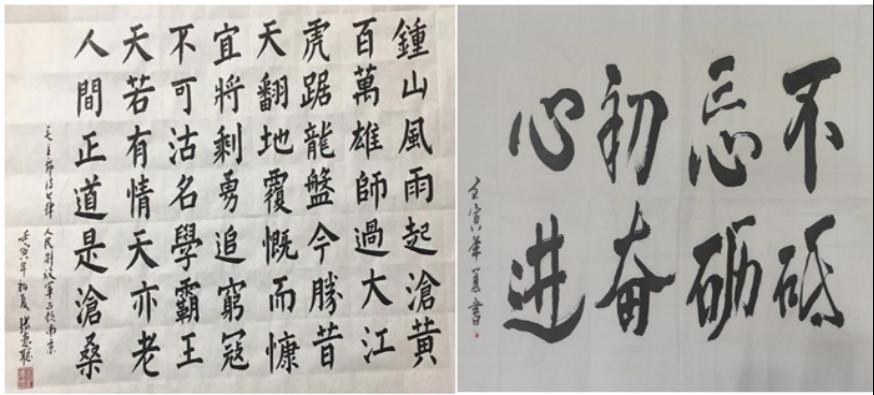 鍾山風雨起滄黄
百萬雄師過大江
虎踞龍盤今勝昔
天翻地覆慨而慷
宜將剩勇追窮寇
不可沽名學霸王
天若有情天亦老
人間正道是滄桑
毛主席詩七律 人民解放軍占领南京
壬寅年初夏
不砥
忘砺
初奋
心进
壬寅 書